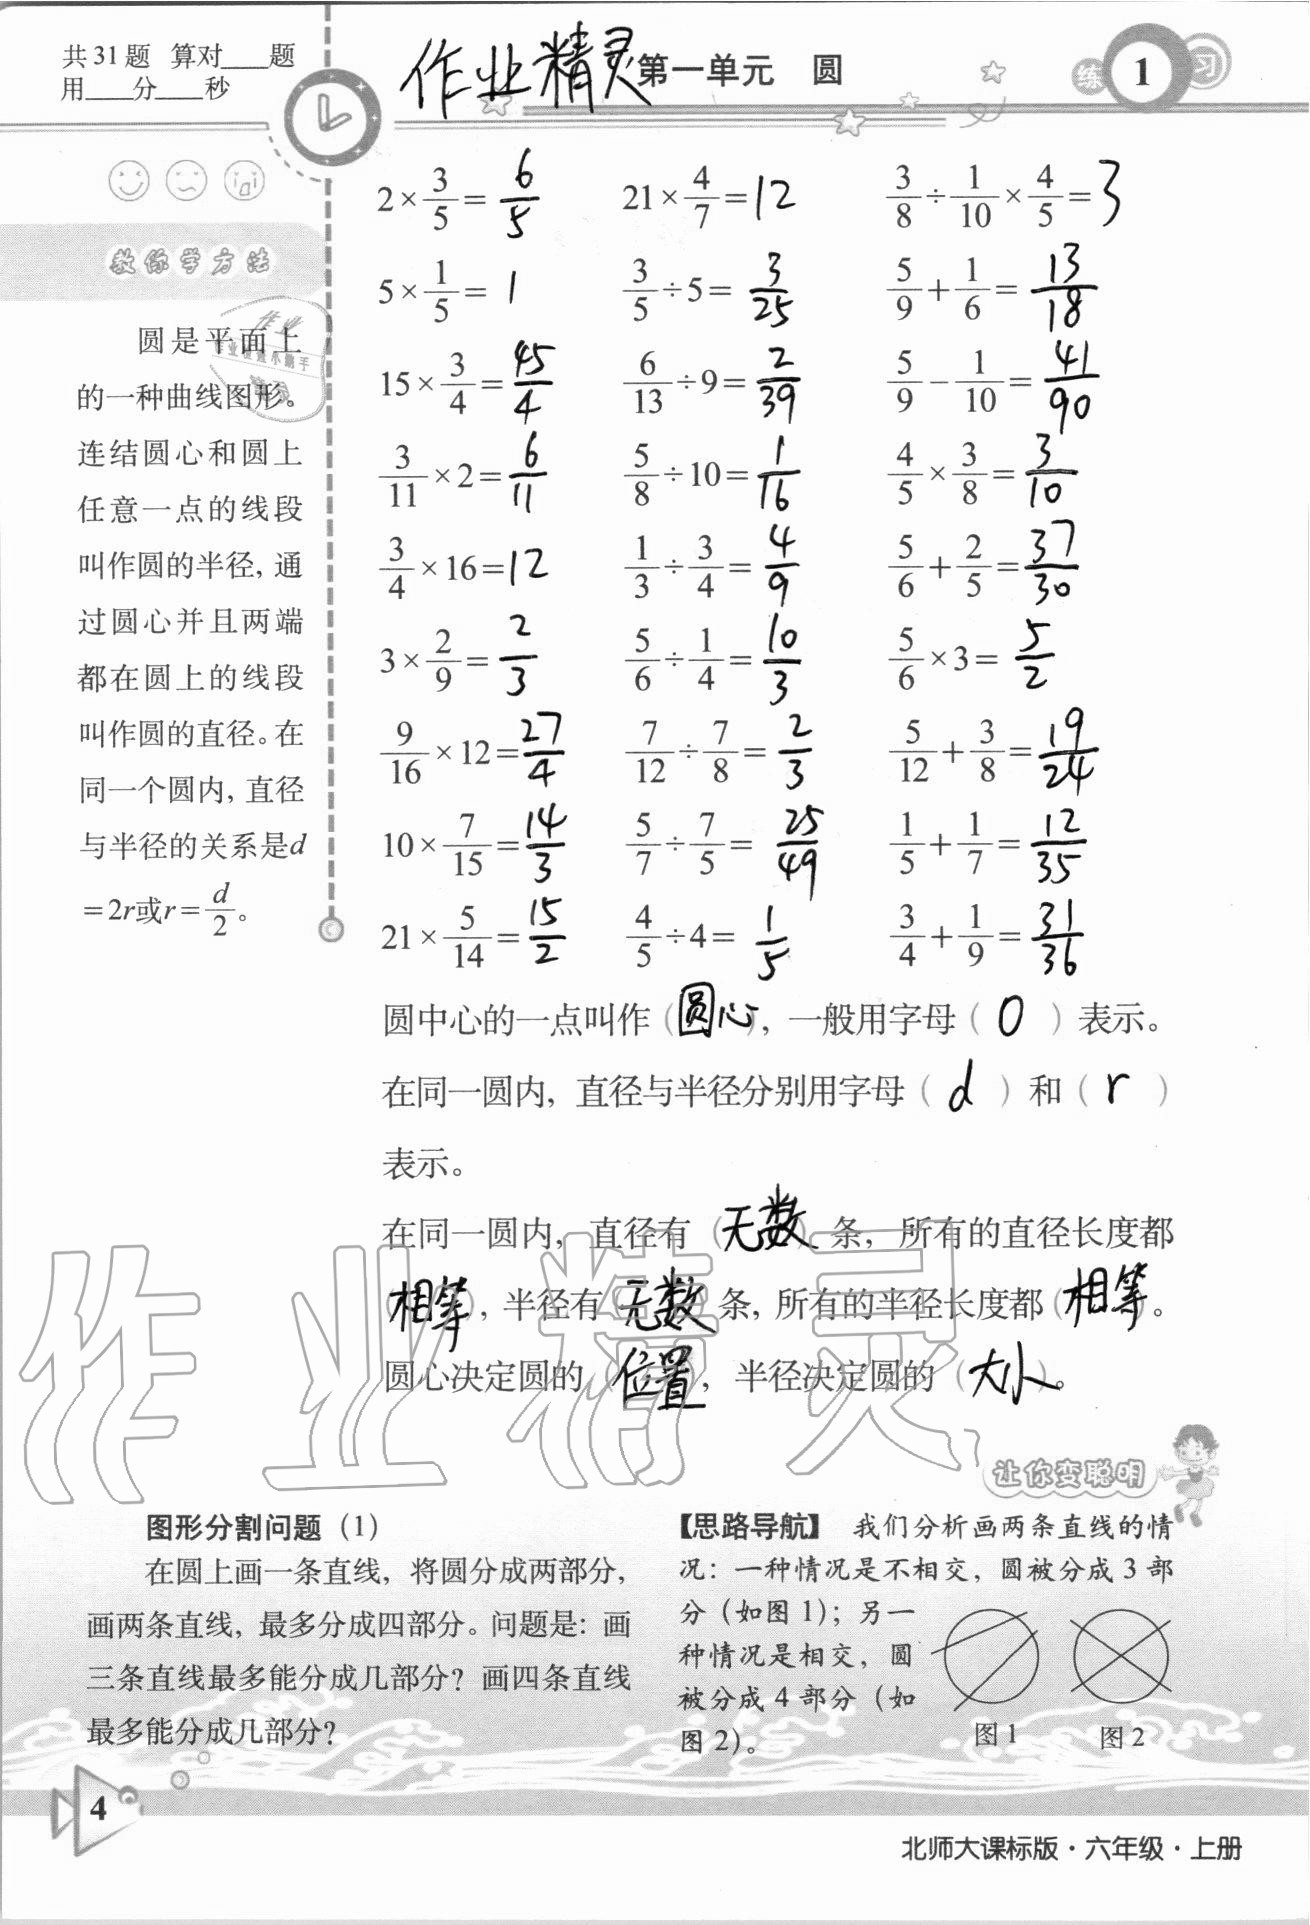 共31题 算对____题
用____分____秒
作业精灵
第一单元 圆
练 1 习
教你学方法
圆是平面上
的一种曲线图形。
连结圆心和圆上
任意一点的线段
叫作圆的半径，通
过圆心并且两端
都在圆上的线段
叫作圆的直径。在
同一个圆内，直径
与半径的关系是d
=2r或r=d/2。
2×3/5=6/5 21×4/7=12 3/8÷1/10×4/5=3
5×1/5=1 3/5÷5=3/25 5/9+1/6=13/18
15×3/4=45/4 6/13÷9=2/39 5/9-1/10=41/90
3/11×2=6/11 5/8÷10=1/16 4/5×3/8=3/10
3/4×16=12 1/3÷3/4=4/9 5/6+2/5=37/30
3×2/9=2/3 5/6÷1/4=10/3 5/6×3=5/2
9/16×12=27/4 7/12÷7/8=2/3 5/12+3/8=19/24
10×7/15=14/3 5/7÷7/5=25/49 1/5+1/7=12/35
21×5/14=15/2 4/5÷4=1/5 3/4+1/9=31/36
圆中心的一点叫作（圆心），一般用字母（O）表示。
在同一圆内，直径与半径分别用字母（d）和（r）
表示。
在同一圆内，直径有（无数）条，所有的直径长度都
（相等），半径有（无数）条，所有的半径长度都（相等）。
圆心决定圆的（位置），半径决定圆的（大小）。
作业精灵
让你变聪明
图形分割问题（1）
在圆上画一条直线，将圆分成两部分，
画两条直线，最多分成四部分。问题是：画
三条直线最多能分成几部分？画四条直线
最多能分成几部分？
【思路导航】 我们分析画两条直线的情
况：一种情况是不相交，圆被分成3部
分（如图1）；另一
种情况是相交，圆
被分成4部分（如
图2）。
图1 图2
4
北师大课标版·六年级·上册